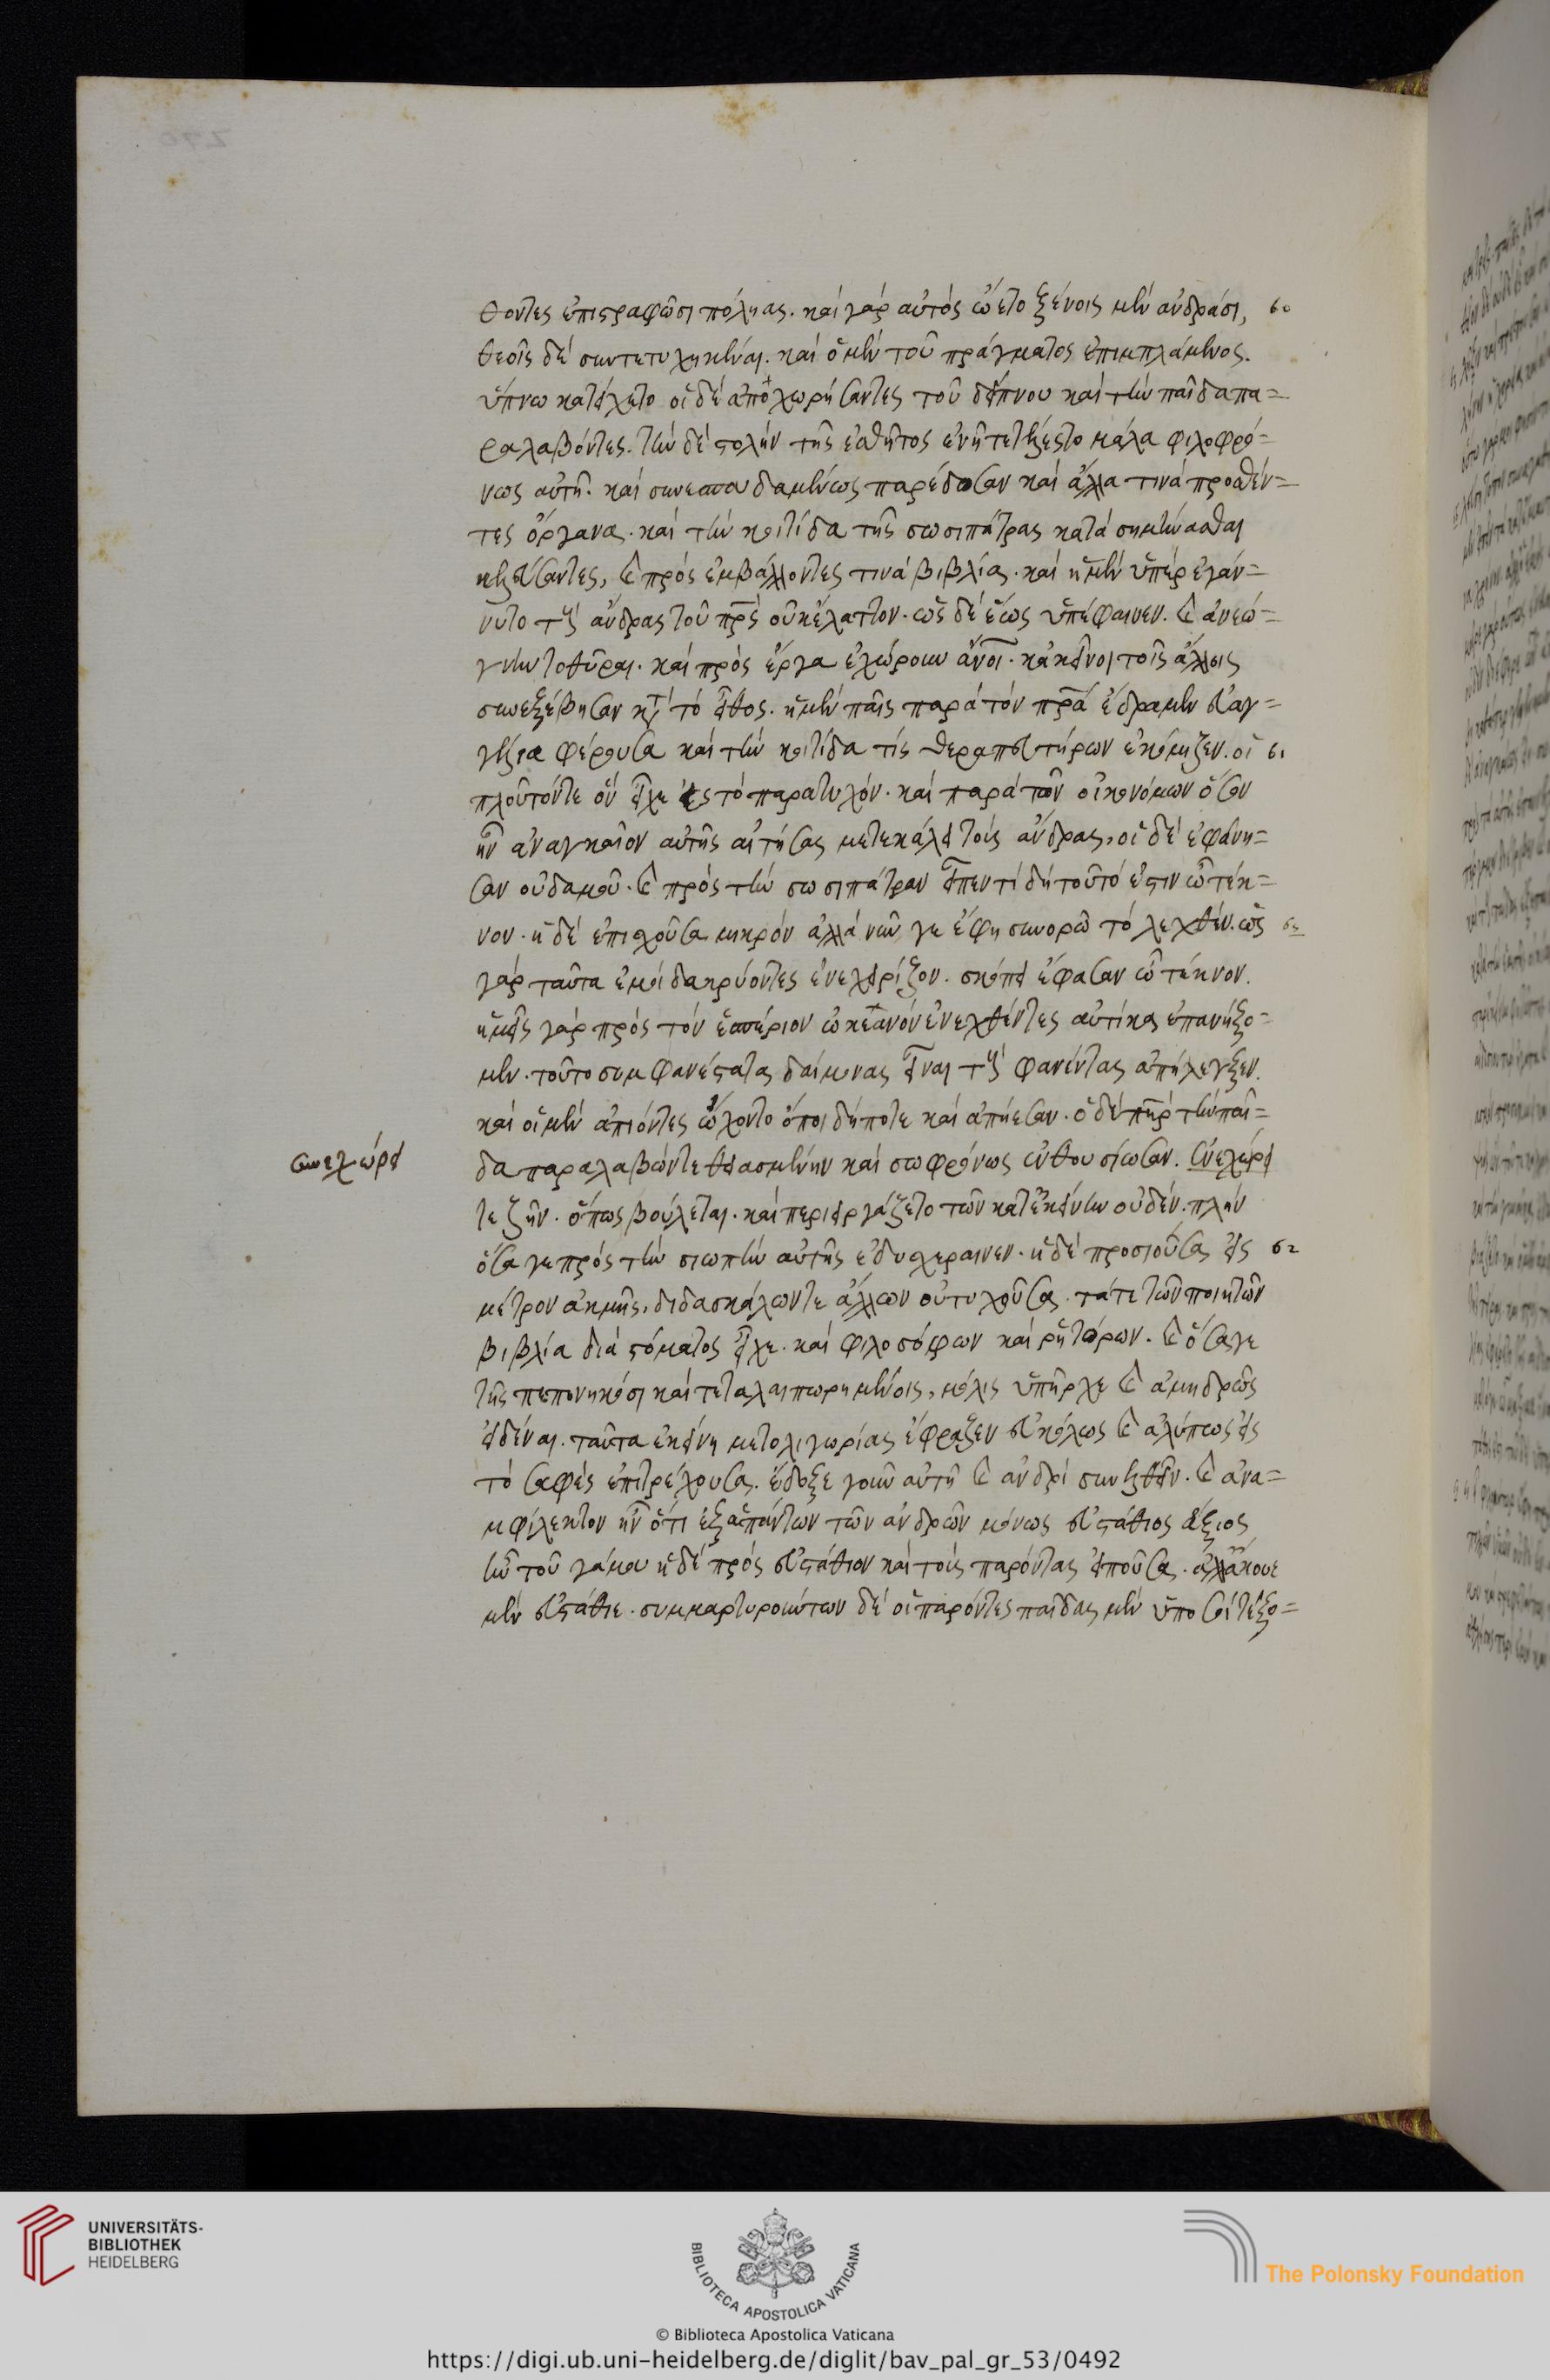 θοντες ἐπιστραφῶσι πόληας. καὶ γὰρ αὐτὸς ᾤετο ξένοις μὲν ἀνδράσι, 60
θεοῖς δὲ συντετυχηκέναι. καὶ ὁ μὲν τοῦ πράγματος ἐπιμπλάμενος.
ὕπνω κατείχετο οἱ δὲ ἀποχωρήσαντες τοῦ δείπνου καὶ τὴν παῖδα πα=
ραλαβόντες. τὴν δὲ στολὴν τῆς ἐσθῆτος ἐν ᾗ τετέλεστο μάλα φιλοφρό=
νως αὐτῇ. καὶ συνεσπουδαμένως παρέδοσαν καὶ ἄλλα τινὰ προσθέν=
τες ὄργανα. καὶ τὴν κοιτίδα τῆς σωσιπάτρας κατασημήνασθαι
κελεύσαντες, καὶ προσεμβάλλοντες τινὰ βιβλία. καὶ ἡ μὲν ὑπερεγάν=
νυτο τοὺς ἄνδρας τοῦ πρς οὐκ ἔλαττον. ὡς δὲ ἕως ὑπέφαινεν. καὶ ἀνεώ=
γνυντο θύραι. καὶ πρὸς ἔργα ἐχώρουν ἄνοι. κἀκεῖνοι τοῖς ἄλλοις
συνεξέβησαν κατὰ τὸ εἶθος. ἡ μὲν παῖς παρὰ τὸν πρα ἔδραμεν εὐαγ=
γέλια φέρουσα καὶ τὴν κοιτίδα τίς θεραπευτήρων ἐκόμιζεν. ὁ 61
πλοῦτόν τε ὃν εἶχε εἰς τὸ παρατυχόν. καὶ παρὰ τῶν οἰκονόμων ὅσον
ἦν ἀναγκαῖον αὐτῆς αἰτήσας μετεκάλει τοὺς ἄνδρας. οἱ δὲ ἐφάνη=
σαν οὐδαμοῦ. καὶ πρὸς τὴν σωσιπάτραν εἶπεν τί δὴ τοῦτό ἐστιν ὦ τέκ=
νον. ἡ δὲ ἐπισχοῦσα μικρὸν ἀλλὰ νῦν γε ἔφη συνορῶ τὸ λεχθέν. ὡς
γὰρ ταῦτα ἐμοὶ δακρύοντες ἐνεχείριζον. σκόπει ἔφασαν ὦ τέκνον.
ἡμεῖς γὰρ πρὸς τὸν ἑσπέριον ὠκεανὸν ἐνεχθέντες αὐτίκα ἐπανήξο=
μεν. τοῦτο συμφανέστατα δαίμονας εἶναι τοὺς φανέντας ἀπήλεγξεν.
καὶ οἱ μὲν ἀπιόντες ᾤχοντο ὅποι δήποτε καὶ ἀπήεσαν. ὁ δὲ πηρ τὴν παῖ=
συνεχώρει
δα παραλαβών τε θειασμένην καὶ σωφρόνως ἐνθουσίωσαν. συνεχώρει
τε ζῆν. ὅπως βούλεται. καὶ περιειργάζετο τῶν κατ' ἐκείνην οὐδέν. πλὴν
ὅσα γε πρὸς τὴν σιωπὴν αὐτῆς ἐδυσχέραινεν. ἡ δὲ προσιοῦσα εἰς 62
μέτρον ἀκμῆς. διδασκάλων τε ἄλλων οὐ τυχοῦσα. τά τε τῶν ποιητῶν
βιβλία διὰ στόματος εἶχε. καὶ φιλοσόφων καὶ ῥητόρων. καὶ ὅσα γε
τῆς πεπονηκόσι καὶ τεταλαιπωρημένοις, μόλις ὑπῆρχε καὶ ἀμυδρῶς
εἰδέναι. ταῦτα ἐκείνη μετ' ὀλιγωρίας ἔφραζεν εὐκόλως καὶ ἀλύπως εἰς
τὸ σαφὲς ἐπιτρέχουσα. ἔδοξε γοῦν αὐτῇ καὶ ἀνδρὶ συνελθεῖν. καὶ ἀνα=
μφίλεκτον ἦν ὅτι ἐξ ἁπάντων τῶν ἀνδρῶν μόνως εὐστάθιος ἄξιος
ἦν τοῦ γάμου ἡ δὲ πρὸς εὐστάθιον καὶ τοὺς παρόντας εἰποῦσα. ἀλλ' ἄκουε
μὲν εὐστάθιε. συμμαρτυρούντων δὲ οἱ παρόντες παῖδας μὲν ὑπὸ σοὶ τέξο=
UNIVERSITÄTS-
BIBLIOTHEK
HEIDELBERG
BIBLIOTECA APOSTOLICA VATICANA
The Polonsky Foundation
© Biblioteca Apostolica Vaticana
https://digi.ub.uni-heidelberg.de/diglit/bav_pal_gr_53/0492